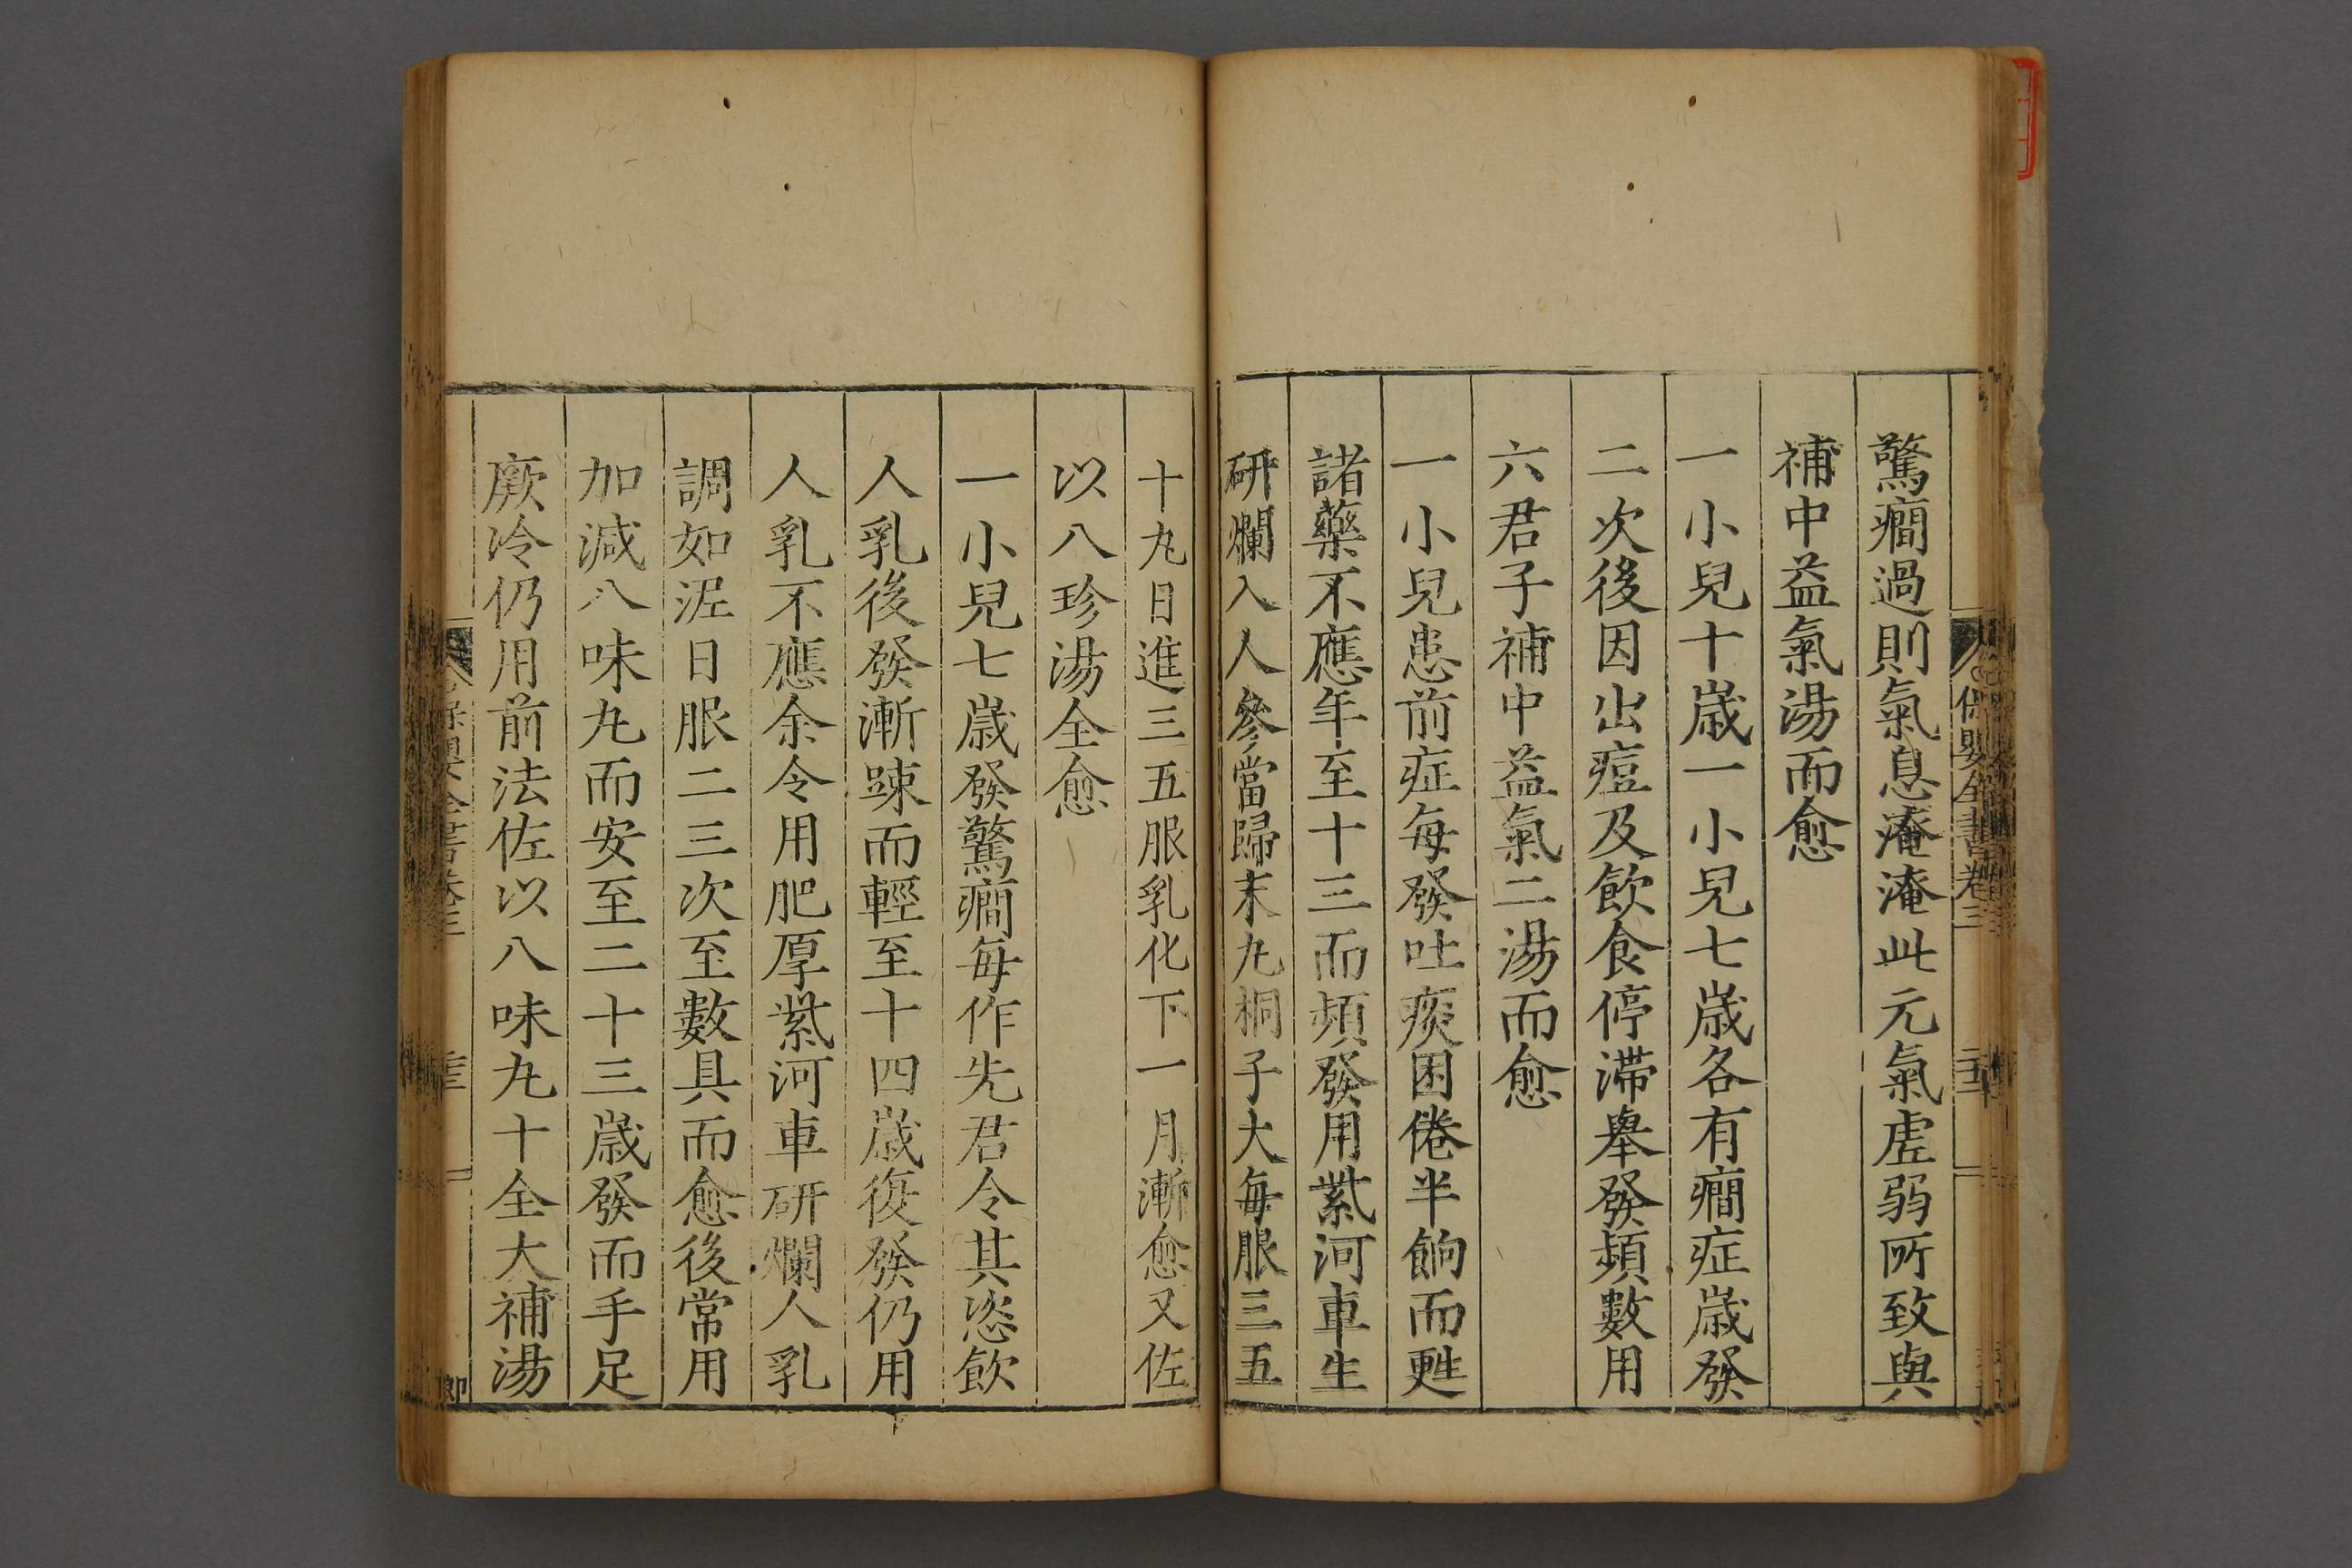 驚癎過則氣息淹淹此元氣虗弱所致與
補中益氣湯而愈
一小兒十歲一小兒七歲各有癎症歲發
二次後因出痘及飲食停滯舉發頻數用
六君子補中益氣二湯而愈
一小兒患前症每發吐痰困倦半餉而甦
諸藥不應年至十三而頻發用紫河車生
研爛入人參當歸末丸桐子大每服三五
十丸日進三五服乳化下一月漸愈又佐
以八珍湯全愈
一小兒七歲發驚癎每作先君令其恣飲
人乳後發漸踈而輕至十四歲復發仍用
人乳不應余令用肥厚紫河車研爛人乳
調如泥日服二三次至數具而愈後常用
加減八味丸而安至二十三歲發而手足
厥冷仍用前法佐以八味丸十全大補湯
保嬰全書卷三